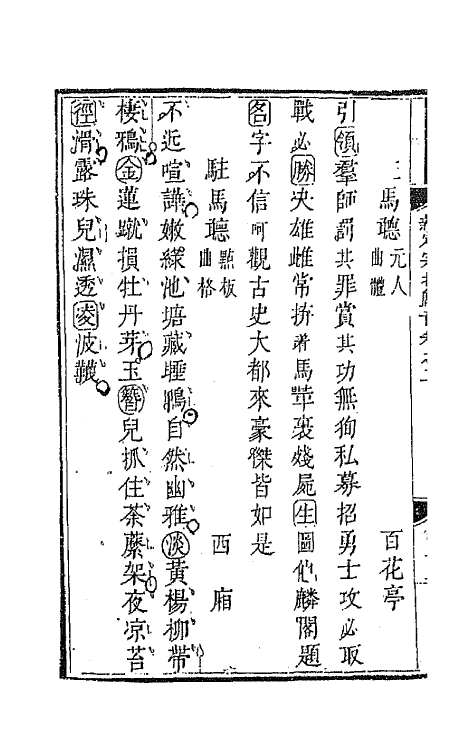 馬聽 元人曲體 百花亭
引領羣師罰其罪賞其功無狥私募招勇士攻必取
戰必勝决雄雌常挤着馬革裹殘屍生圖像麟閣題
名字不信呵觀古史大都來豪傑皆如是
駐馬聽 點板曲格 西廂
不近喧譁嫩綠池塘藏睡鴨自然幽雅淡黄楊柳帶
棲鴉金蓮蹴損牡丹芽玉簪兒抓住荼蘼架夜凉苔
徑滑露珠兒濕透凌波韈